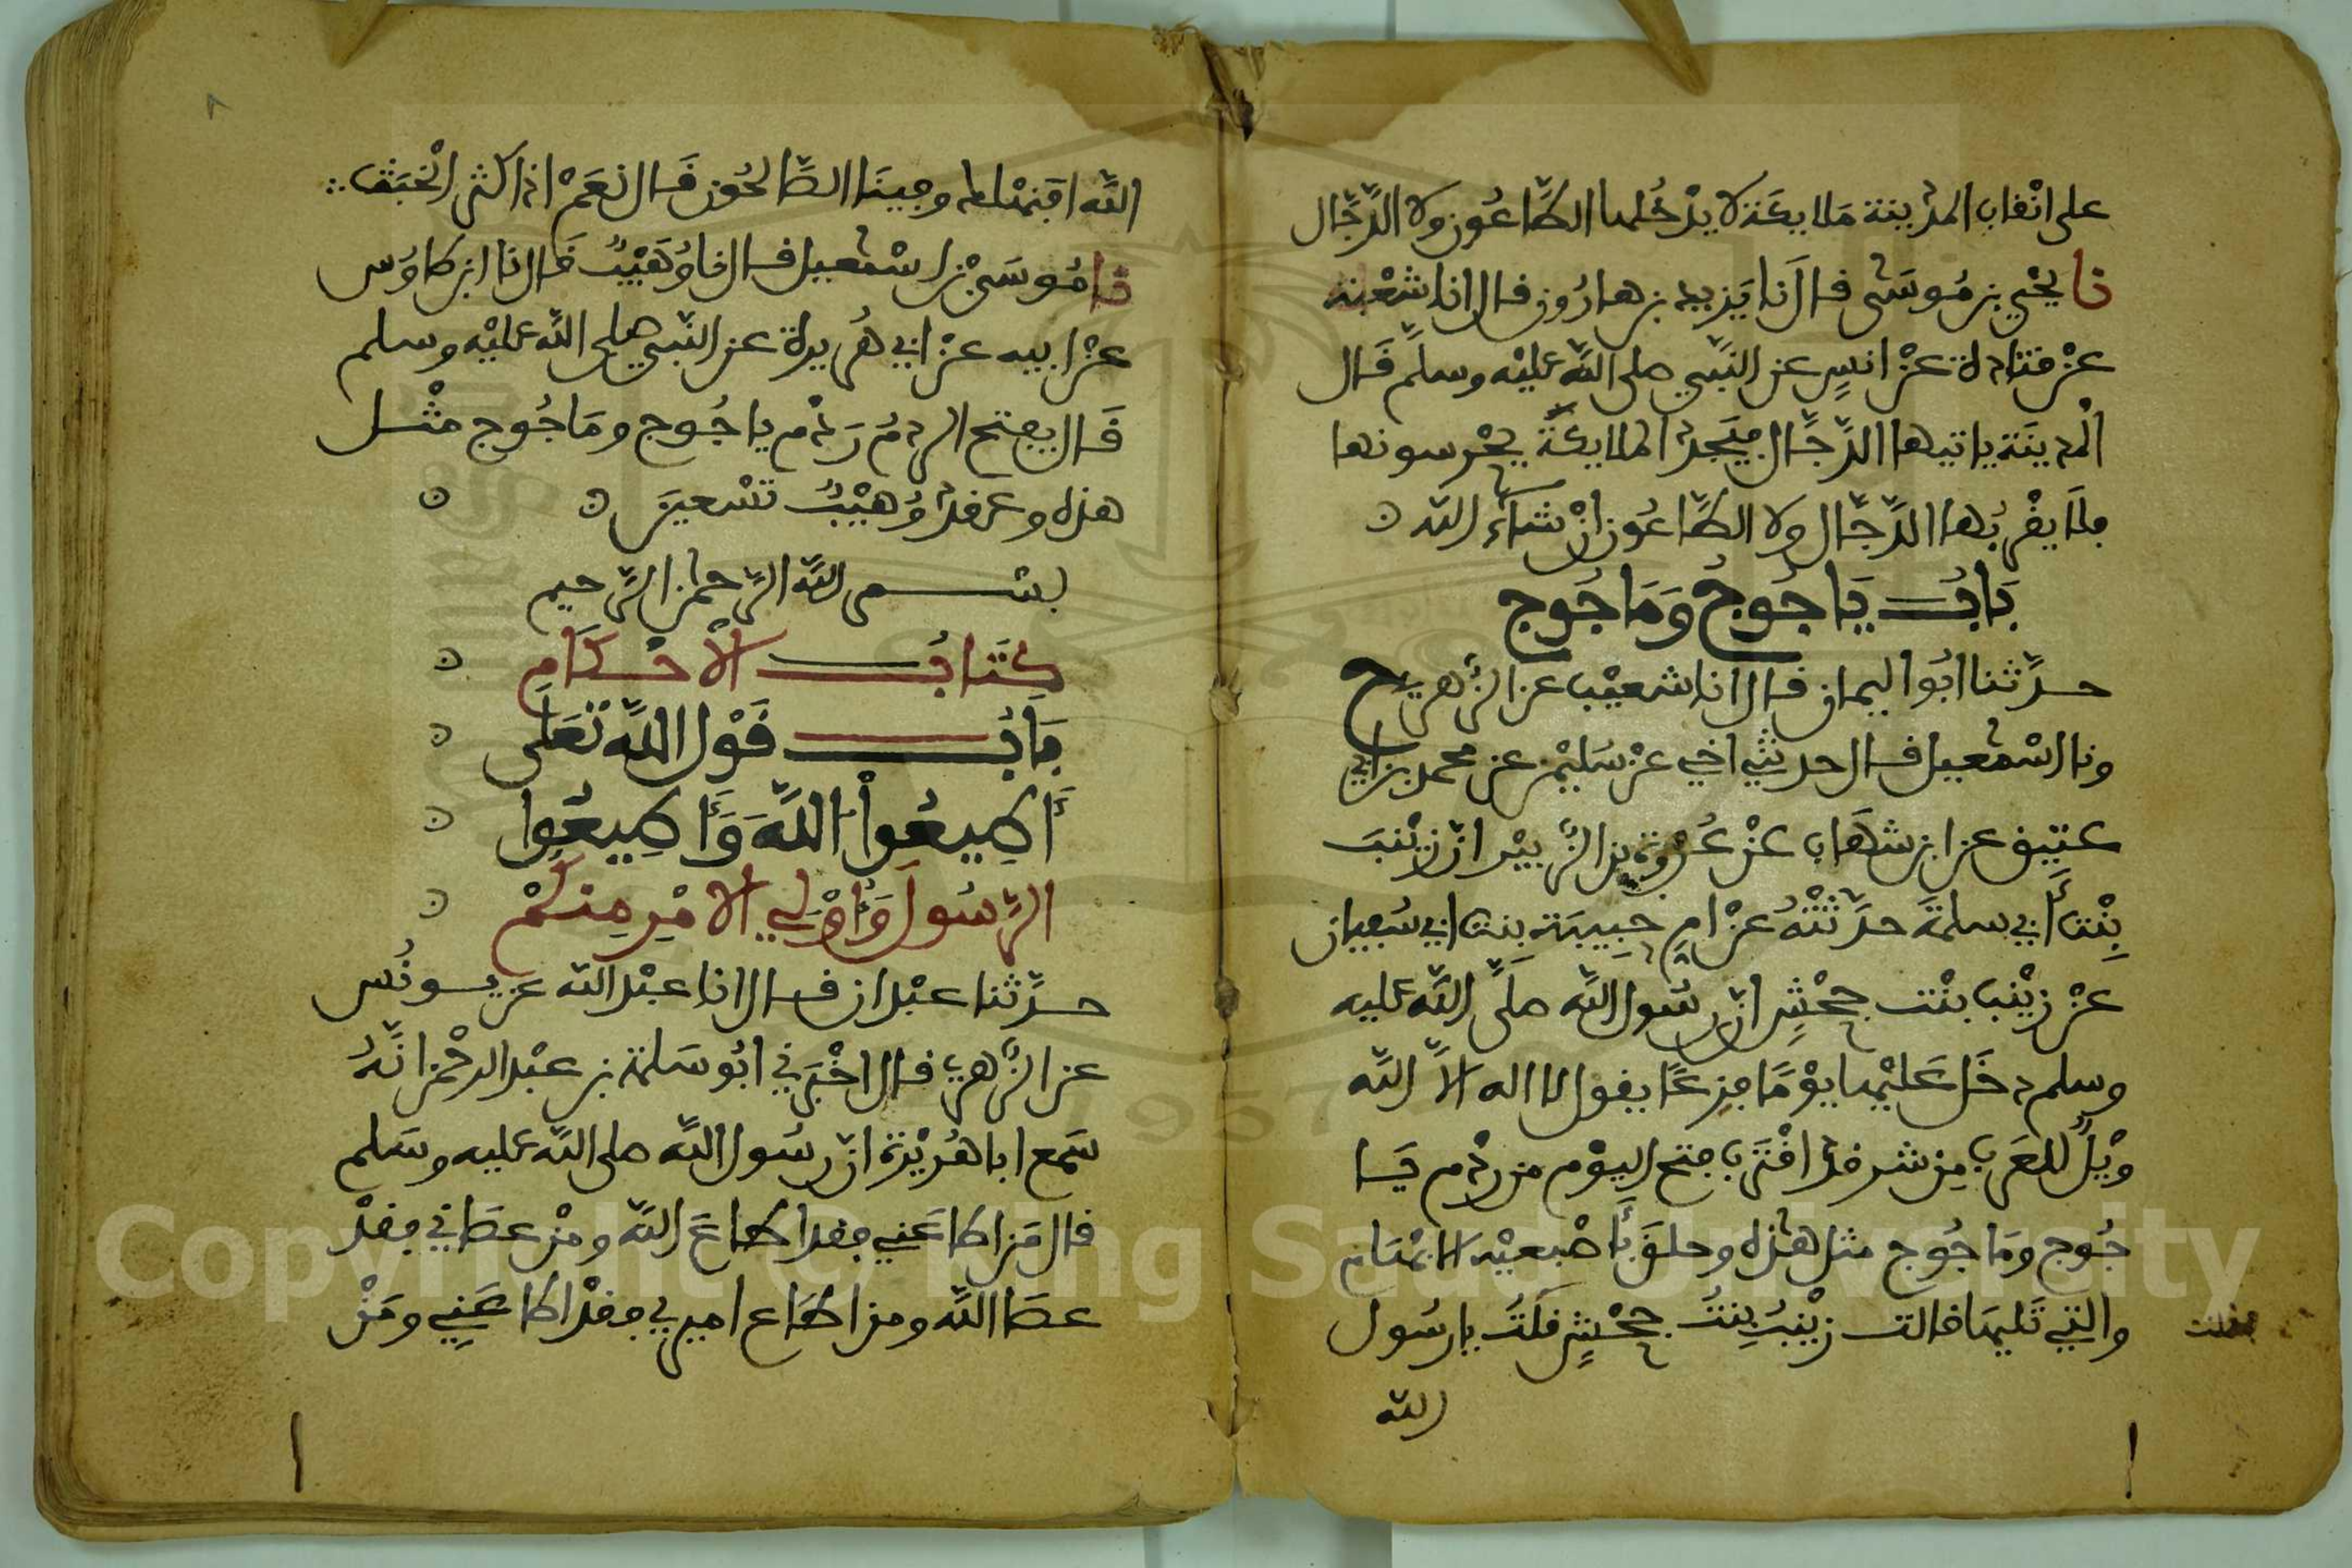 على انقاب المدينة ملايكة لا يدخلها الطاعون ولا الدجال
نا يحيى بن موسى قال نا يزيد بن هارون قال انا شعبة
عن قتادة عن انس عن النبي صلى الله عليه وسلم قال
المدينة ياتيها الدجال فيجد الملايكة يحرسونها
فلا يقربها الدجال ولا الطاعون ان شاء الله
باب ياجوج وماجوج
حدثنا ابو اليمان قال انا شعيب عن الزهري ح
ونا اسمعيل قال حدثني اخي عن سليمن عن محمد بن ابي
عتيق عن ابن شهاب عن عروة بن الزبير ان زينب
بنت أبي سلمة حدثته عن ام حبيبة بنت ابي سفيان
عن زينب بنت جحش ان رسول الله صلى الله عليه
وسلم دخل عليها يوما فزعا يقول لا اله الا الله
ويل للعرب من شر قد اقترب فتح اليوم من ردم يا
جوج وماجوج مثل هذه وحلق بأصبعيه الابهام
والتي تليها قالت زينب بنت جحش فقلت يا رسول
الله
الله افنهلك وفينا الصالحون قال نعم اذا كثر الخبث
نا موسى بن اسمعيل قال نا وهيب قال نا ابن طاوس
عن ابيه عن ابي هريرة عن النبي صلى الله عليه وسلم
قال يفتح الردم ردم ياجوج وماجوج مثل
هذه وعقد وهيب تسعين
بسم الله الرحمن الرحيم
كتاب الأحكام
باب قول الله تعلى
أطيعوا الله وأطيعوا
الرسول وأولي الامر منكم
حدثنا عبدان قال انا عبد الله عن يونس
عن الزهري قال اخبرني ابو سلمة بن عبد الرحمن انه
سمع ابا هريرة ان رسول الله صلى الله عليه وسلم
قال من اطاعني فقد اطاع الله ومن عصاني فقد
عصا الله ومن اطاع اميري فقد اطاعني ومن
Copyright © King Saud University
1957